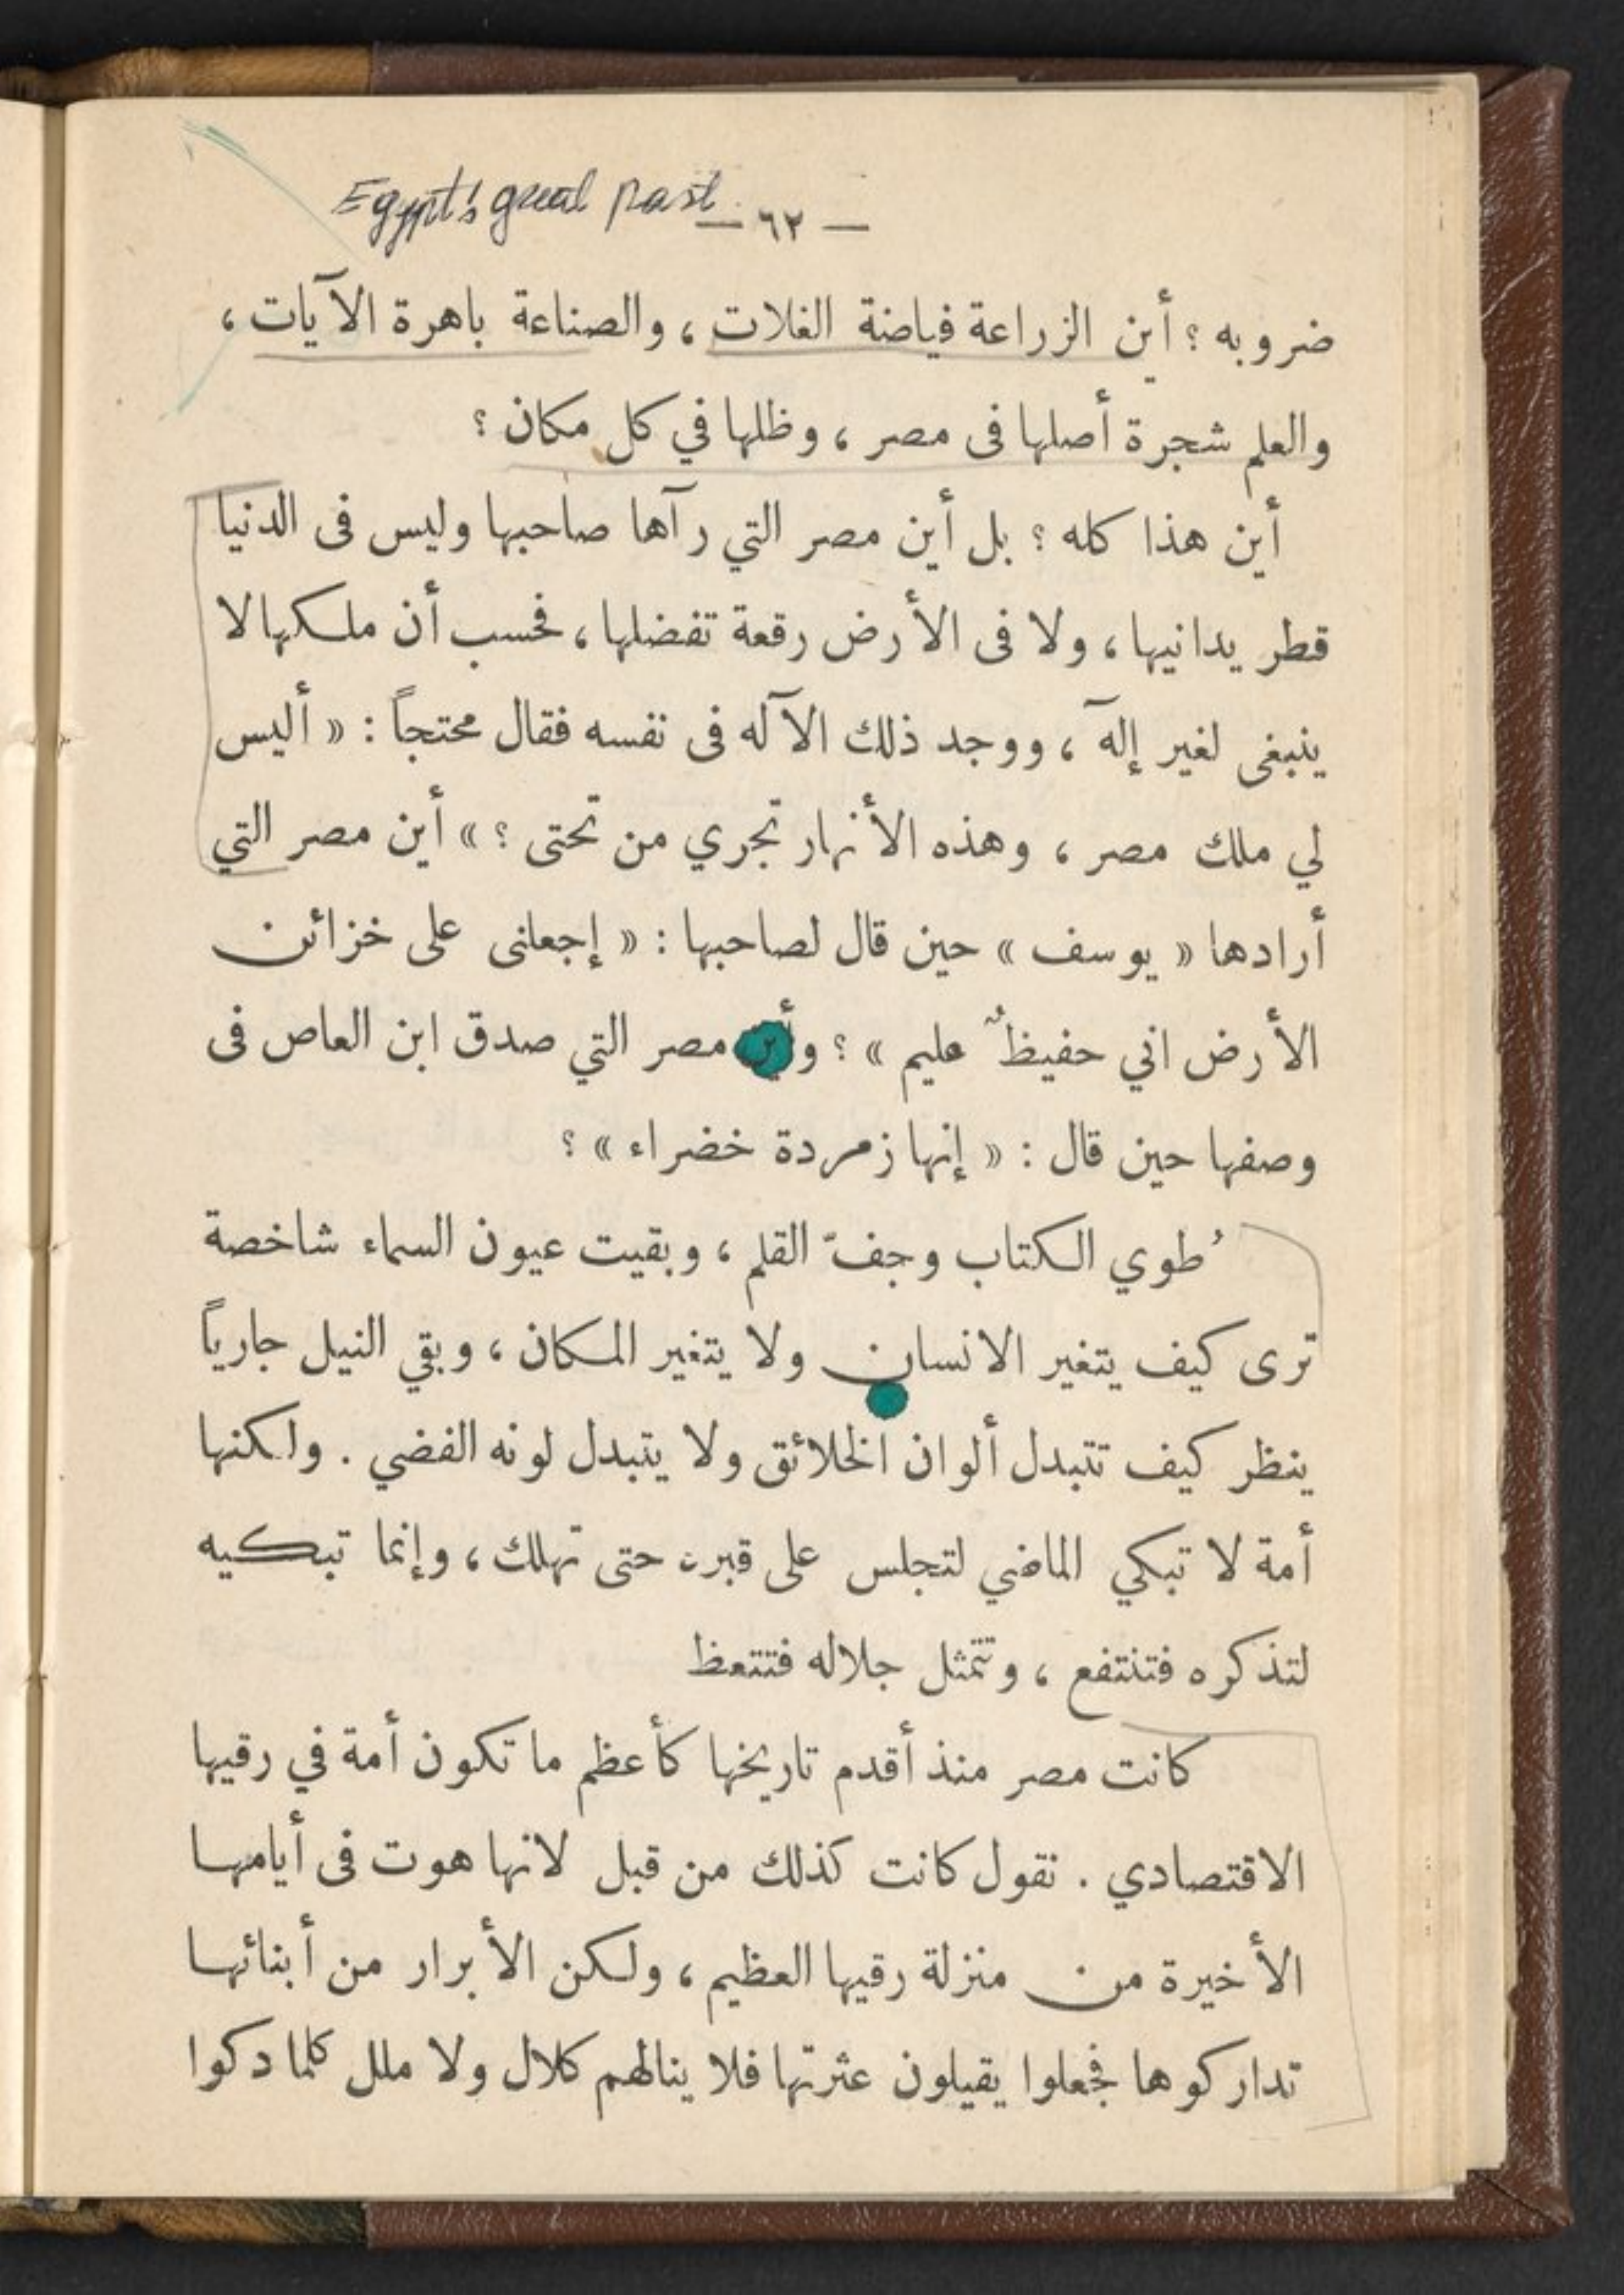 Egypt's great past
— ٦٢ —
ضروبه ؟ أين الزراعة فياضة الغلات ، والصناعة باهرة الآيات ،
والعلم شجرة أصلها فى مصر ، وظلها في كل مكان ؟
أين هذا كله ؟ بل أين مصر التي رآها صاحبها وليس فى الدنيا
قطر يدانيها ، ولا فى الأرض رقعة تفضلها ، فحسب أن ملكها لا
ينبغى لغير إلهٓ ، ووجد ذلك الآله فى نفسه فقال محتجاً : « أليس
لي ملك مصر ، وهذه الأنهار تجري من تحتى ؟ » أين مصر التي
أرادها « يوسف » حين قال لصاحبها : « إجعلنى على خزائن
الأرض اني حفيظٌ عليم » ؟ وأين مصر التي صدق ابن العاص فى
وصفها حين قال : « إنها زمردة خضراء » ؟
طُوي الكتاب وجفّ القلم ، وبقيت عيون السماء شاخصة
ترى كيف يتغير الانسان ولا يتغير المكان ، وبقي النيل جارياً
ينظر كيف تتبدل ألوان الخلائق ولا يتبدل لونه الفضي . ولكنها
أمة لا تبكي الماضي لتجلس على قبره حتى تهلك ، وإنما تبكيه
لتذكره فتنتفع ، وتتمثل جلاله فتتعظ
كانت مصر منذ أقدم تاريخها كأعظم ما تكون أمة في رقيها
الاقتصادي . نقول كانت كذلك من قبل لانها هوت فى أيامها
الأخيرة من منزلة رقيها العظيم ، ولكن الأبرار من أبنائها
تداركوها فجعلوا يقيلون عثرتها فلا ينالهم كلال ولا ملل كلما دكوا